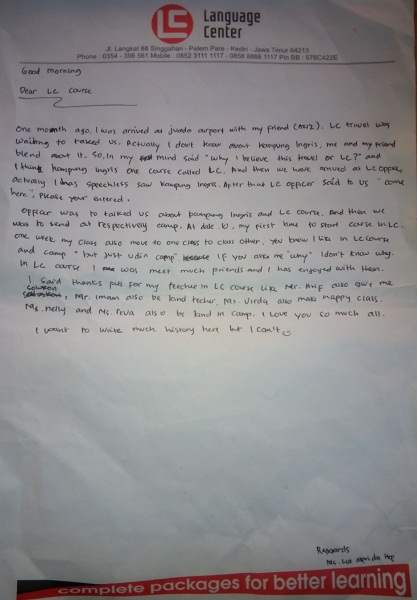 LC
Language
Center
Jl. Langkat 88 Singgahan - Pelem Pare - Kediri - Jawa Timur 64213
Phone : 0354 - 398 581 Mobile : 0852 3111 1117 - 0858 6888 1117 Pin BB :
Good morning
Dear LC course
One month ago, I was arrived at juada airport with my friend LC travel was
waiting to talked us. Actually I don't know about kampung Ingris, me and my friend
blend about it. So, In my mind said "why I believe this travel or LC?" and
I think kampung Ingris one course called LC. And then we have arrived at LC office,
actually I was speechless saw kampung Ingris. After that LC officer said to us "come
here". Please your entered.
Officer was to talked us about kampung Ingris and LC course. And then we
was to send at respectively camp. At date 10, my first time to start course in LC.
One week my class also move to one class to class other. You know I like in LC course
and camp " but just Udin camp" If you ask me "why" I don't know why.
In LC course I was meet much friends and I has enjoyed with them.
I said thanks full for my teacher in LC course like Mr. Arif also give me
, Mr. Imam also be kind techer, Ms. Virda also make happy class.
Ms. Nelly and Ms. also be kind in camp. I love you so much all.
I want to write much history here but I can't
Regards
Ms.
complete packages for better learning